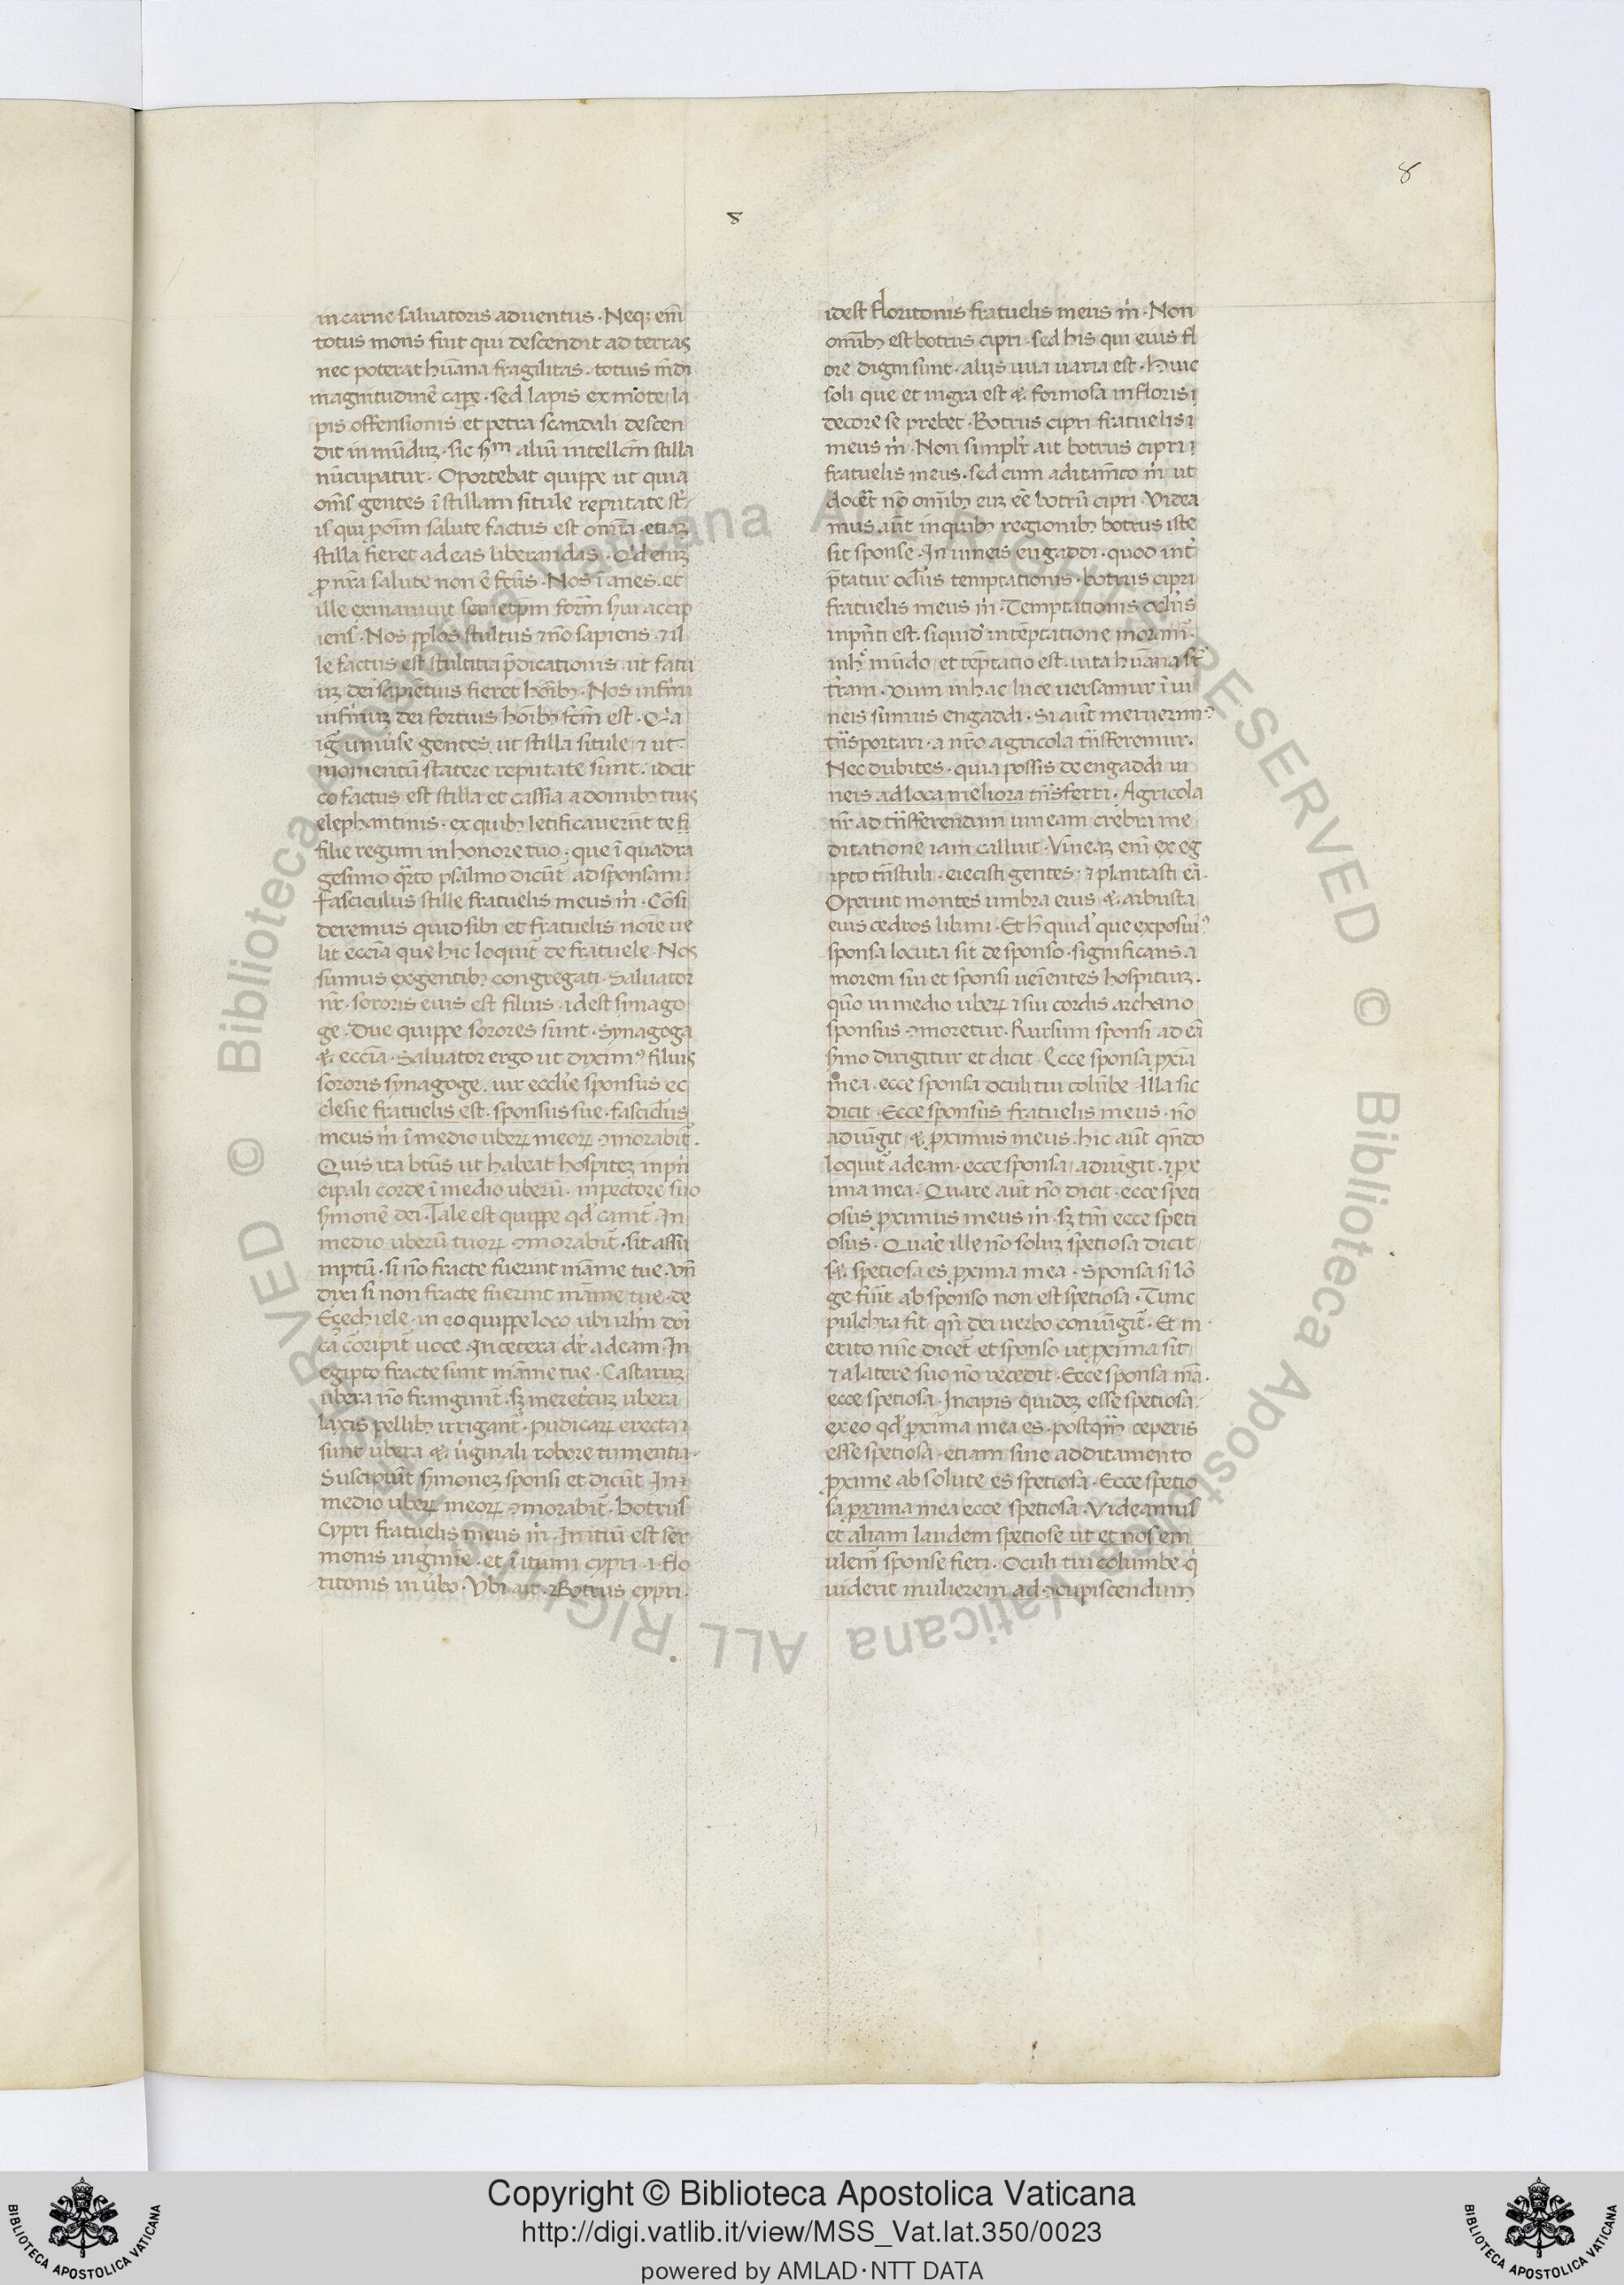 8
8
in carne saluatoris aduentus · Neq; em̄
totus mons fuit qui descendit ad terras
nec poterat hūana fragilitas · totius mūdi
magnitudinē cape · sed lapis ex mōte la
pis offensionis et petra scandali descen
dit in mūduꝫ · sic scd̄m aliū intellectū stilla
nūcupatur · Oportebat quippe ut quia
om̄s gentes ī stillam situle reputate st̄
is qui ꝓ om̄ salute factus est om̄ia · etiaꝫ
stilla fieret ad eas liberandas · Qd eniꝫ
ꝓ nr̄a salute non ē fct̄us · Nos īanes · et
ille exinaniuit
iens · Nos pp̄los stultus ⁊ nō sapiens · ⁊ il
le factus est stultitia p̄dicationis · ut fatu
uꝫ dei sapiētius fieret hoīb; · Nos infirmi
infirmuꝫ dei fortius hoīb; fcm̄ est · Q̇a
igr̄ uniuīse gentes ut stilla situle ⁊ ut
momentū statere reputate sunt · idcir
co factus est stilla et cassia a domib; tuis
elephantinis · ex quib; letificauerūt te fi
filie regum in honore tuo · que ī quadra
gesimo qr̄to psalmo dicūt ad sponsam
Fasciculus stille fratuelis meus m̄ · Cōsi
deremus quid sibi et fratuelis noīe ue
lit eccīa que hic loquit̄ de fratuele · Nos
sumus ex gentib; congregati · Saluator
nr̄ · sororis eius est filius · idest synago
ge · Due quippe sorores sunt · Synagoga
⁊ eccīa · Saluator ergo ut dixim⁹ filius
sororis synagoge · uir ecclīe sponsus ec
clesie fratuelis est · sponsus sue · fasciclus
meus m̄ ī medio uberꝝ meorꝝ ꝯmorabit̄ ·
Quis ita btūs ut habeat hospiteꝫ in prī
cipali corde ī medio uberū · in pectore suo
smonē dei · Tale est quippe qd̄ canit̄ · In
medio uberū tuorꝝ ꝯmorabit̄ · sit assū
mptū · si nō fracte fuerint māme tue · Vn̄
dixi si non fracte fuerint māme tue · de
Ezechiele · in eo quippe loco ubi irlm̄ doī
ca cōripit̄ uoce · In cetera dr̄ ad eam · In
egipto fracte sunt māme tue · Castaruꝫ
ubera nō frangunt̄ · sꝫ meretcuꝫ ubera
laxis pellib; irrigant̄ · pudicarꝝ erecta
sunt ubera ⁊ uirginali robore tumentia ·
Suscipiūt smoneꝫ sponsi et dicūt In
medio uberꝝ meorꝝ ꝯmorabit̄ · botrus
Cypri fratuelis meus m̄ · Initiū est ser
monis · et ītium cypri · i · flo
ritionis in uerbo · Vbi ait · Botrus cypri ·
idest floritonis fratuelis meus m̄ · Non
om̄ib; est botrus cipri · sed his qui eius fl
ore digni sunt · alijs uua uaria est · huic
soli que et nigra est ⁊ formosa in floris
decore se prebet · Botrus cipri fratuelis
meus m̄ · Non simplr̄ ait botrus cipri
fratuelis meus · sed cum aditam̄to m̄ ut
docēt nō om̄ib; euꝫ eē botrū cipri · Videa
mus aūt in quib; regionib; botrus iste
sit sponse · In uineis engaddi · quod int̄
p̄tatur oclus temptationis · botrus cipri
fratuelis meus m̄ · Temptationis oclus
in pn̄ti est · siquid̄ in tēptatione moram̄
in h̄ mūdo · et tēptatio est · uita hūana s̄
tr̄am · Dum in hac luce uersamur ī ui
neis sumus engaddi · Si aūt meruerim⁹
trn̄sportari · a nr̄o agricola trn̄sferemur ·
Nec dubites · quia possis de engaddi ui
neis ad loca meliora trn̄sferri · Agricola
nr̄ ad trn̄sferendum uineam crebra me
ditatione iam calluit · Vineaꝫ em̄ ex eg
ipto trn̄stuli · eiecisti gentes · ⁊ plantasti eā ·
Operuit montes umbra eius ⁊ arbusta
eius cedros libani · Et h̄ quid̄ que exposuim⁹
sponsa locuta sit de sponso · significans a
morem sui et sponsi ueīentes hospituꝫ ·
quō in medio uberꝝ ⁊ sui cordis archano
sponsus ꝯmoretur · Rursum sponsi ad eā
smo dirigitur et dicit · Ecce sponsa ꝓxīa
mea · ecce sponsa oculi tui colūbe · Illa sic
dicit · Ecce sponsus fratuelis meus · nō
adiūgit ⁊ ꝓximus meus · hic aūt qn̄do
loquit̄ ad eam · ecce sponsa adiūgit · ⁊ ꝓx
ima mea · Quare aūt nō dicit · ecce speti
osus ꝓximus meus m̄ · sꝫ tm̄ ecce speti
osus · Quare ille nō soluꝫ spetiosa dicit
s⁊ spetiosa es ꝓxima mea · Sponsa si lō
ge fuīt ab sponso non est spetiosa · Tunc
pulchra fit qn̄ dei uerbo coniūgit̄ · Et m
erito nūc dicet̄ et sponso ut ꝓxima sit
⁊ a latere suo nō recedit · Ecce sponsa mā ·
ecce spetiosa · Incipis quideꝫ esse spetiosa
ex eo qd̄ ꝓxima mea es · postqm̄ ceperis
esse spetiosa · etiam sine additamento
ꝓxime absolute es spetiosa · Ecce spetio
sa ꝓxima mea ecce spetiosa · Videamus
et aliam laudem spetiose ut et nos em
ulem̄ sponse fieri · Oculi tui columbe · q̇
uiderit mulierem ad ꝯcupiscendum
© Biblioteca Apostolica Vaticana ALL RIGHTS RESERVED © Biblioteca Apostolica Vaticana ALL RIGHTS RESERVED
BIBLIOTECA APOSTOLICA VATICANA
Copyright © Biblioteca Apostolica Vaticana
http://digi.vatlib.it/view/MSS_Vat.lat.350/0023
powered by AMLAD·NTT DATA
BIBLIOTECA APOSTOLICA VATICANA